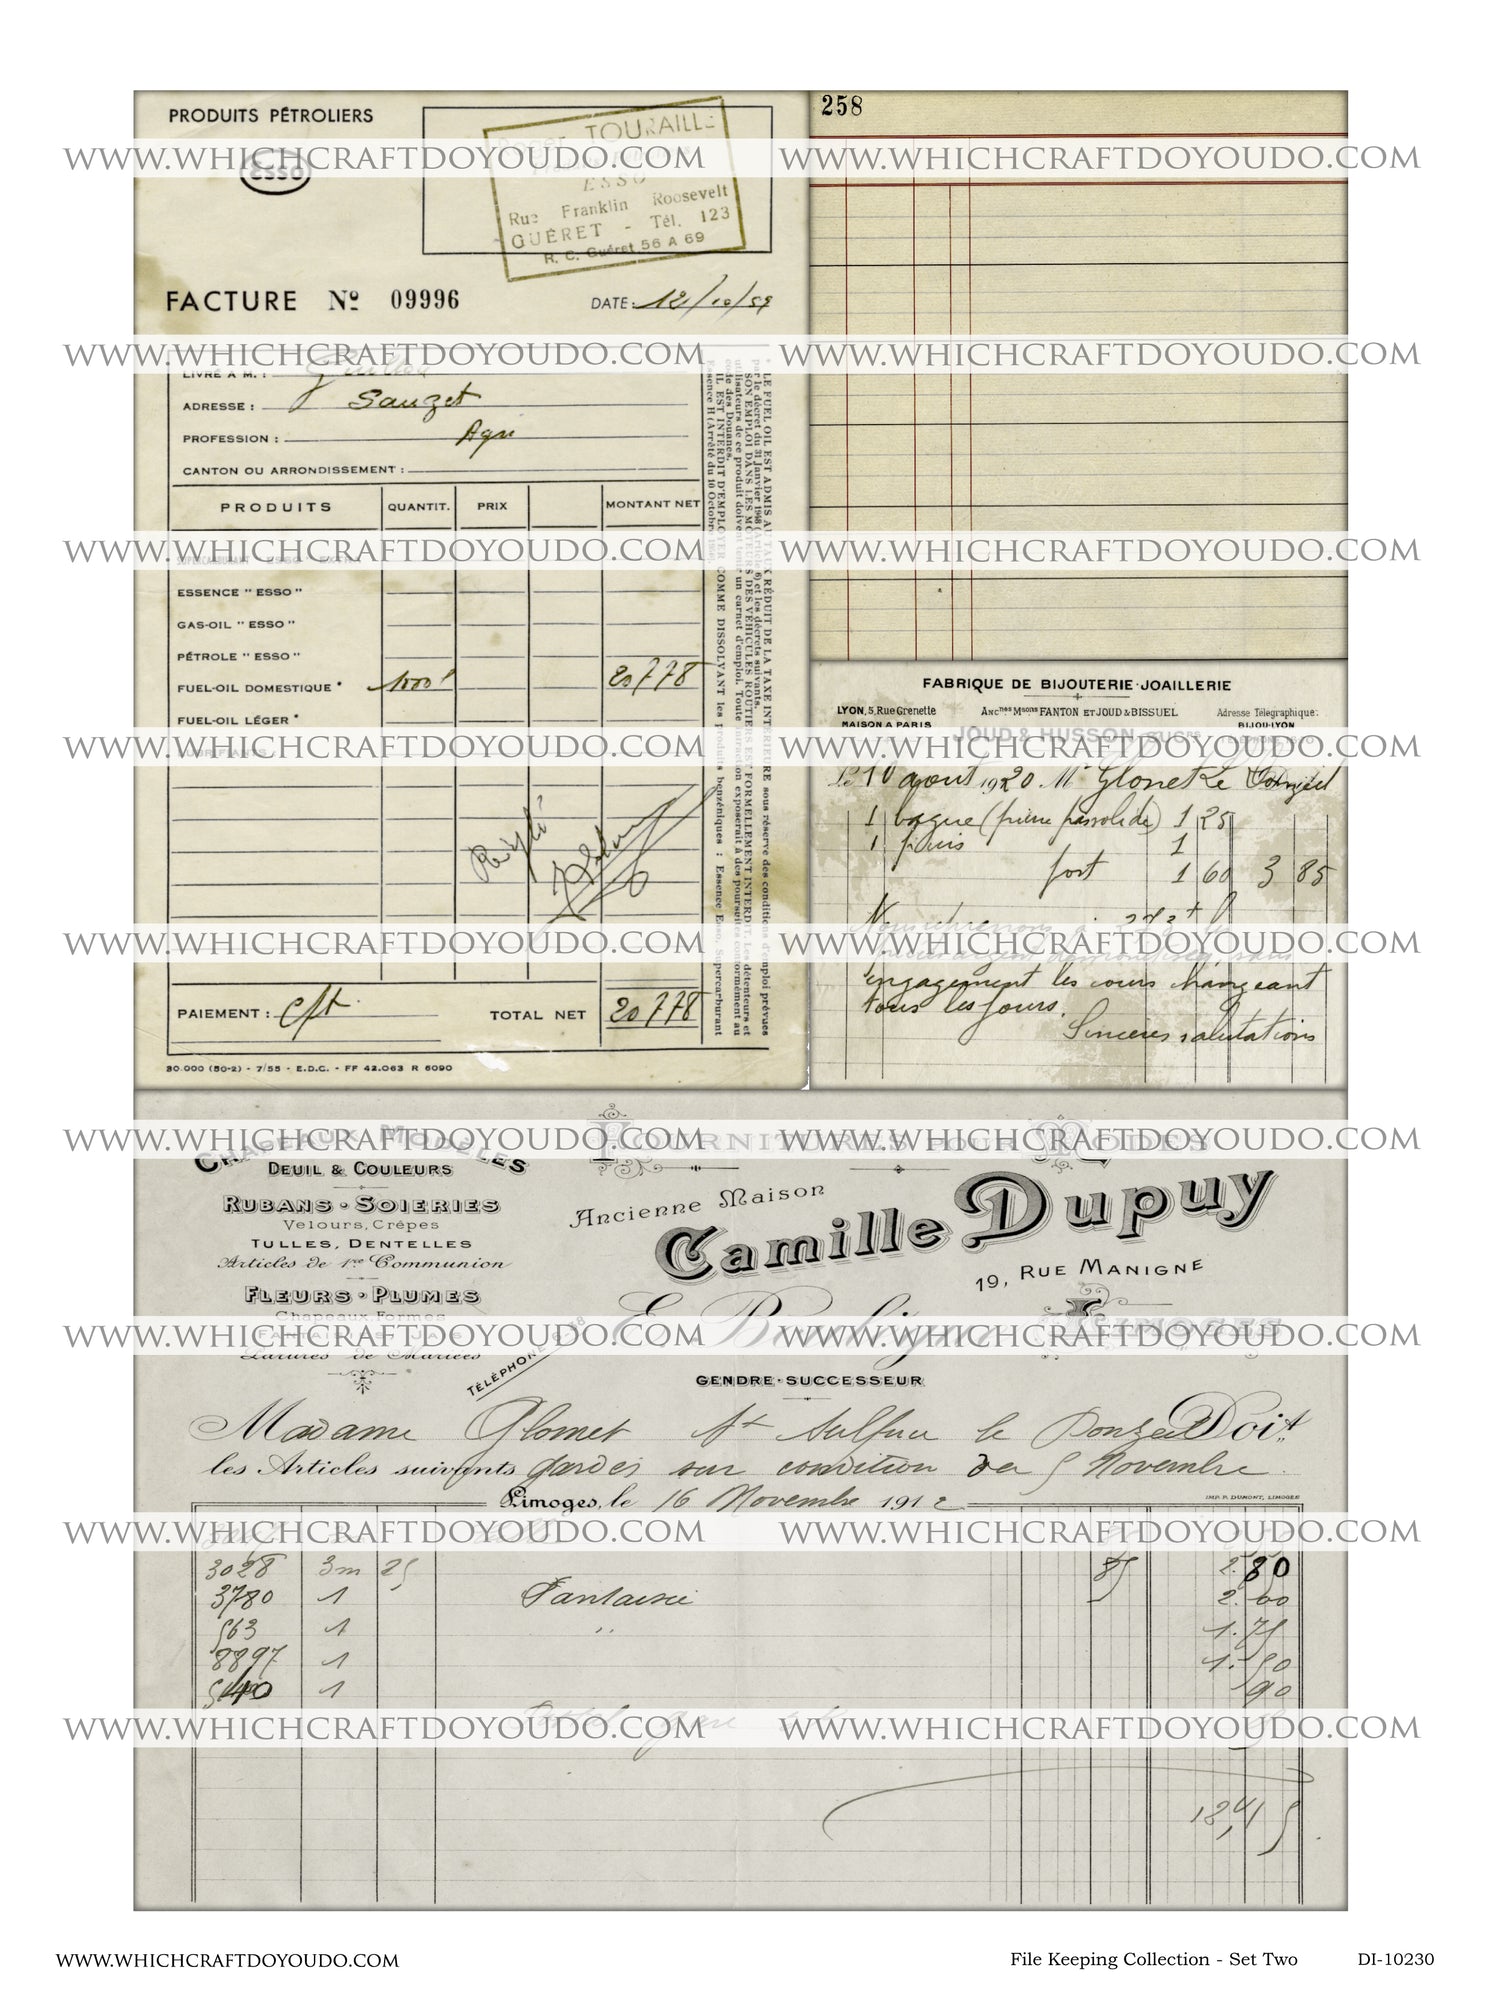 PRODUITS PÉTROLIERS
ESSO
TOURAILLE
ESSO
Rue Franklin Roosevelt
GUÉRET - Tél. 123
R. C. Guéret 56 A 69
FACTURE Nº 09996
DATE: 12/10/59
LIVRÉ A M. :
ADRESSE : Sauzet
PROFESSION : Agri
CANTON OU ARRONDISSEMENT :
PRODUITS QUANTIT. PRIX MONTANT NET
SUPERCARBURANT ESSO EXTRA
ESSENCE " ESSO "
GAS-OIL " ESSO "
PÉTROLE " ESSO "
FUEL-OIL DOMESTIQUE * 1000 20778
FUEL-OIL LÉGER *
LUBRIFIANTS :
PAIEMENT : TOTAL NET 20778
30.000 (50-2) - 7/55 - E.D.C. - FF 42.063 R 6090
* LE FUEL OIL EST ADMIS AU TAUX RÉDUIT DE LA TAXE INTÉRIEURE sous réserve des conditions d'emploi prévues
par le décret du 31 Janvier 1948 (Article 6) et les décrets suivants.
SON EMPLOI DANS LES MOTEURS DES VÉHICULES ROUTIERS EST FORMELLEMENT INTERDIT. Les détenteurs et
utilisateurs de ce produit doivent tenir un carnet d'emploi. Toute infraction exposerait à des poursuites conformément au
code des Douanes.
IL EST INTERDIT D'EMPLOYER COMME DISSOLVANT les produits benzéniques : Essence Esso, Supercarburant
Essence H (Arrêté du 10 Octobre
258
FABRIQUE DE BIJOUTERIE-JOAILLERIE
LYON, 5, Rue Grenette Ancnes Msons FANTON ET JOUD & BISSUEL Adresse Télégraphique:
MAISON A PARIS BIJOU-LYON
JOUD & HUSSON, SUCRS
10 aout 1920 Mr Glonet Le
1 bague 1 25
1 1
port 1 60 3 85
engagement les cours changeant
tous les jours.
Sinceres salutations
CHAPEAUX MODÈLES
DEUIL & COULEURS
RUBANS - SOIERIES
Velours, Crêpes
TULLES, DENTELLES
Articles de 1re Communion
FLEURS - PLUMES
Chapeaux, Formes
FANTAISIES, JAIS
Parures de Mariées
TÉLÉPHONE
FOURNITURES POUR MODES
Ancienne Maison
Camille Dupuy
19, RUE MANIGNE
LIMOGES
GENDRE-SUCCESSEUR
Madame Glomet St Doit
les Articles suivants gardés sur condition du 5 Novembre
Limoges, le 16 Novembre 1912
IMP. P. DUMONT, LIMOGES
3028 3m 25 85 2.80
3780 1 Fantaisie 2.00
563 1 " 1.75
8897 1 1.50
540 1 90
18,45
WWW.WHICHCRAFTDOYOUDO.COM WWW.WHICHCRAFTDOYOUDO.COM
WWW.WHICHCRAFTDOYOUDO.COM WWW.WHICHCRAFTDOYOUDO.COM
WWW.WHICHCRAFTDOYOUDO.COM WWW.WHICHCRAFTDOYOUDO.COM
WWW.WHICHCRAFTDOYOUDO.COM WWW.WHICHCRAFTDOYOUDO.COM
WWW.WHICHCRAFTDOYOUDO.COM WWW.WHICHCRAFTDOYOUDO.COM
WWW.WHICHCRAFTDOYOUDO.COM WWW.WHICHCRAFTDOYOUDO.COM
WWW.WHICHCRAFTDOYOUDO.COM WWW.WHICHCRAFTDOYOUDO.COM
WWW.WHICHCRAFTDOYOUDO.COM WWW.WHICHCRAFTDOYOUDO.COM
WWW.WHICHCRAFTDOYOUDO.COM WWW.WHICHCRAFTDOYOUDO.COM
WWW.WHICHCRAFTDOYOUDO.COM File Keeping Collection - Set Two DI-10230